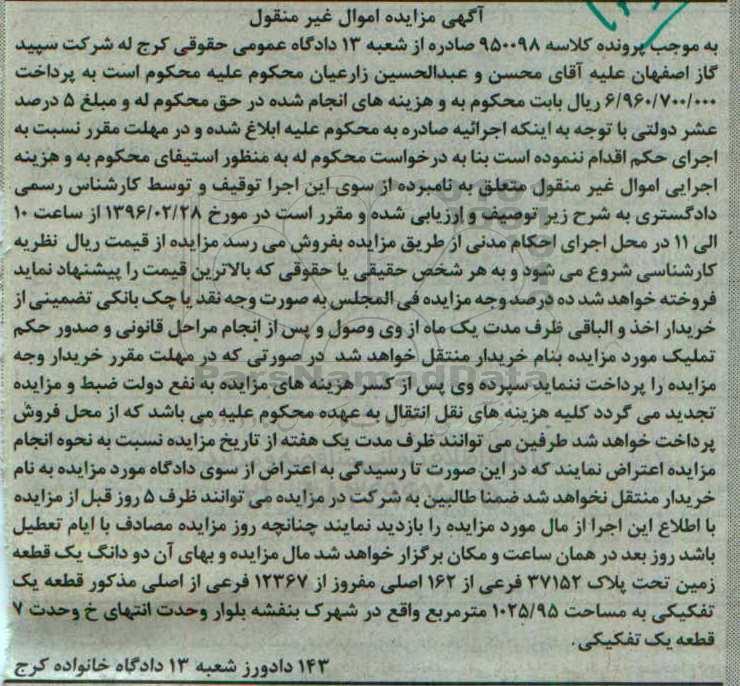 آگهی مزایده اموال غیر منقول
به موجب پرونده کلاسه ۹۵۰۰۹۸ صادره از شعبه ۱۳ دادگاه عمومی حقوقی کرج له شرکت سپید
گاز اصفهان علیه آقای محسن و عبدالحسین زارعیان محکوم علیه محکوم است به پرداخت
۶/۹۶۰/۷۰۰/۰۰۰ ریال بابت محکوم به و هزینه های انجام شده در حق محکوم له و مبلغ ۵ درصد
عشر دولتی با توجه به اینکه اجرائیه صادره به محکوم علیه ابلاغ شده و در مهلت مقرر نسبت به
اجرای حکم اقدام ننموده است بنا به درخواست محکوم له به منظور استیفای محکوم به و هزینه
اجرایی اموال غیر منقول متعلق به نامبرده از سوی این اجرا توقیف و توسط کارشناس رسمی
دادگستری به شرح زیر توصیف و ارزیابی شده و مقرر است در مورخ ۱۳۹۶/۰۲/۲۸ از ساعت ۱۰
الی ۱۱ در محل اجرای احکام مدنی از طریق مزایده بفروش می رسد مزایده از قیمت ریال نظریه
کارشناسی شروع می شود و به هر شخص حقیقی یا حقوقی که بالاترین قیمت را پیشنهاد نماید
فروخته خواهد شد ده درصد وجه مزایده فی المجلس به صورت وجه نقد یا چک بانکی تضمینی از
خریدار اخذ و الباقی ظرف مدت یک ماه از وی وصول و پس از انجام مراحل قانونی و صدور حکم
تملیک مورد مزایده بنام خریدار منتقل خواهد شد در صورتی که در مهلت مقرر خریدار وجه
مزایده را پرداخت ننماید سپرده وی پس از کسر هزینه های مزایده به نفع دولت ضبط و مزایده
تجدید می گردد کلیه هزینه های نقل انتقال به عهده محکوم علیه می باشد که از محل فروش
پرداخت خواهد شد طرفین می توانند ظرف مدت یک هفته از تاریخ مزایده نسبت به نحوه انجام
مزایده اعتراض نمایند که در این صورت تا رسیدگی به اعتراض از سوی دادگاه مورد مزایده به نام
خریدار منتقل نخواهد شد ضمنا طالبین به شرکت در مزایده می توانند ظرف ۵ روز قبل از مزایده
با اطلاع این اجرا از مال مورد مزایده را بازدید نمایند چنانچه روز مزایده مصادف با ایام تعطیل
باشد روز بعد در همان ساعت و مکان برگزار خواهد شد مال مزایده و بهای آن دو دانگ یک قطعه
زمین تحت پلاک ۳۷۱۵۲ فرعی از ۱۶۲ اصلی مفروز از ۱۲۳۶۷ فرعی از اصلی مذکور قطعه یک
تفکیکی به مساحت ۱۰۲۵/۹۵ مترمربع واقع در شهرک بنفشه بلوار وحدت انتهای خ وحدت ۷
قطعه یک تفکیکی.
۱۴۳ دادورز شعبه ۱۳ دادگاه خانواده کرج
ParsNamadData